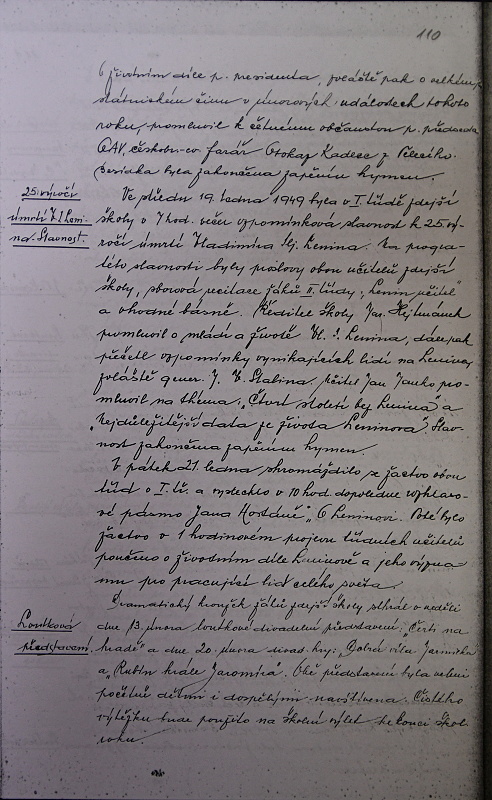 110
O životním díle p. presidenta, zvláště pak o velkém
státnickém činu v únorových událostech tohoto
roku, promluvil k četnému občanstvu p. předseda
OAV, českobr. ev. farář Otokar Kadlec z Telecího.
Besídka byla zakončena zapěním hymen.
25. výročí
úmrtí V. I. Leni-
na. Slavnost.
Ve středu 19. ledna 1949 byla v I. třídě zdejší
školy v 7 hod. večer vzpomínková slavnost k 25. vý-
ročí úmrtí Vladimíra Ilj. Lenina. Na progra-
mu této slavnosti byly proslovy obou učitelů zdejší
školy, sborová recitace žáků II. třídy: "Lenin učitel"
a vhodné básně. Ředitel školy Jar. Hejtmánek
promluvil o mládí a životě Vl. I. Lenina, dále pak
přečetl vzpomínky vynikajících lidí na Lenina,
zvláště gener. J. V. Stalina. Učitel Jan Janko pro-
mluvil na thema: "Čtvrt století bez Lenina" a
"Nejdůležitější data ze života Leninova". Slav-
nost zakončena zapěním hymen.
V pátek 21. ledna shromáždilo se žactvo obou
tříd v I. tř. a vyslechlo v 10 hod. dopoledne rozhlaso-
vé pásmo Jana Hostáně "O Leninovi". Poté bylo
žactvo v 1 hodinovém projevu třídních učitelů
poučeno o životním díle Leninově a jeho význa
mu pro pracující lid celého světa.
Loutková
představení.
Dramatický kroužek žáků zdejší školy sehrál v neděli
dne 13. února loutkové divadelní představení: "Čerti na
hradě" a dne 20. února divad. hry: Dobrá víla Jarmilka
a "Rubín krále Jaromíra". Obě představení byla velmi
početně dětmi i dospělými navštívena. Čistého
výtěžku bude použito na školní výlet ke konci škol.
roku.